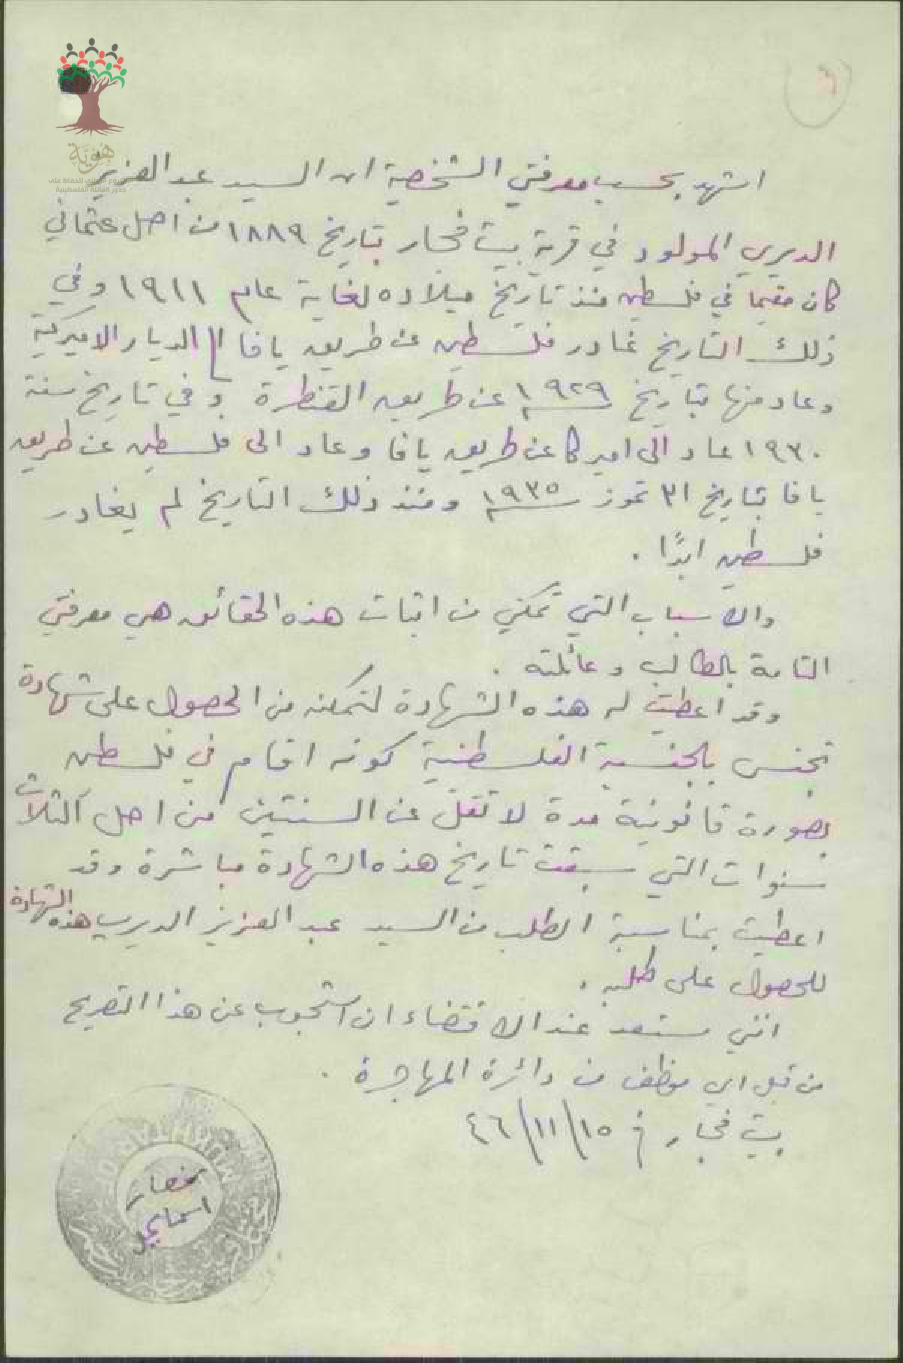 هوية
اشهد بحسب معرفتي الشخصية ان السيد عبد العزيز
الديري المولود في قرية بيت فجار بتاريخ ١٨٨٩ من اصل عثماني
كان مقيما في فلسطين منذ تاريخ ميلاده لغاية عام ١٩١١ وفي
ذلك التاريخ غادر فلسطين عن طريق يافا الى الديار الاميركية
وعاد منها بتاريخ ١٩٢٩ عن طريق القنطرة وفي تاريخ سنة
١٩٣٠ عاد الى اميركا عن طريق يافا وعاد الى فلسطين عن طريق
يافا بتاريخ ٣١ تموز ١٩٣٥ ومنذ ذلك التاريخ لم يغادر
فلسطين ابدًا .
والاسباب التي تمكني من اثبات هذه الحقائق هي معرفتي
التامة بالطالب وعائلته .
وقد اعطيت له هذه الشهادة لتمكنه من الحصول على شهادة
تجنس بالجنسية الفلسطنية كونه اقام في فلسطين
بصورة قانونية مدة لا تقل عن السنتين من اصل الثلاث
سنوات التي سبقت تاريخ هذه الشهادة مباشرة وقد
اعطيت بمناسبة الطلب من السيد عبد العزيز الديري هذه الشهادة
للحصول على طلبه .
انني مستعد عند الاقتضاء ان استجوب عن هذا التصريح
من قبل اي موظف من دائرة المهاجرة .
بيت فجار في ١٥/١١/٤٦
مختار
اسماعيل